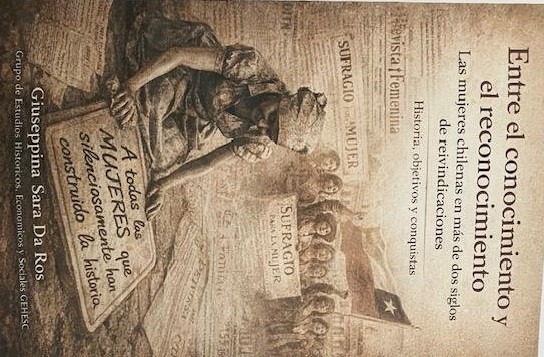 Entre el conocimiento y
el reconocimiento
Las mujeres chilenas en más de dos siglos
de reivindicaciones
Historia, objetivos y conquistas
Revista Femenina
SUFRAGIO
MUJER
SUFRAGIO
PARA LA MUJER
A todas las
MUJERES que
silenciosamente han
construido la historia
Giuseppina Sara Da Ros
Grupo de Estudios Históricos, Económicos y Sociales GEHESC